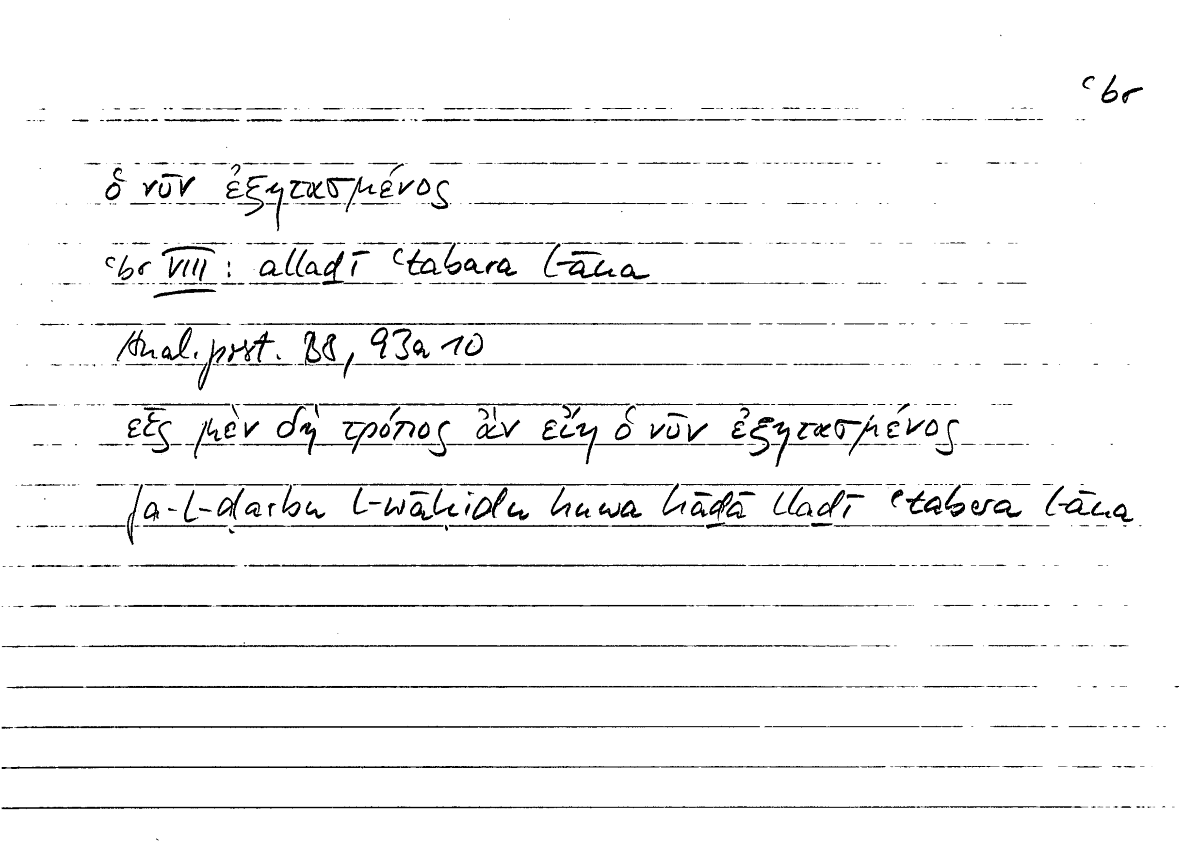 ʿbr
ὁ νῦν ἐξητασμένος
ʿbr VIII: allaḏī ʿtabara l-āna
Anal. post. B8, 93a10
εἷς μὲν δὴ τρόπος ἂν εἴη ὁ νῦν ἐξητασμένος
fa-l-ḍarbu l-wāḥidu huwa hāḏā llaḏī ʿtabera l-āna